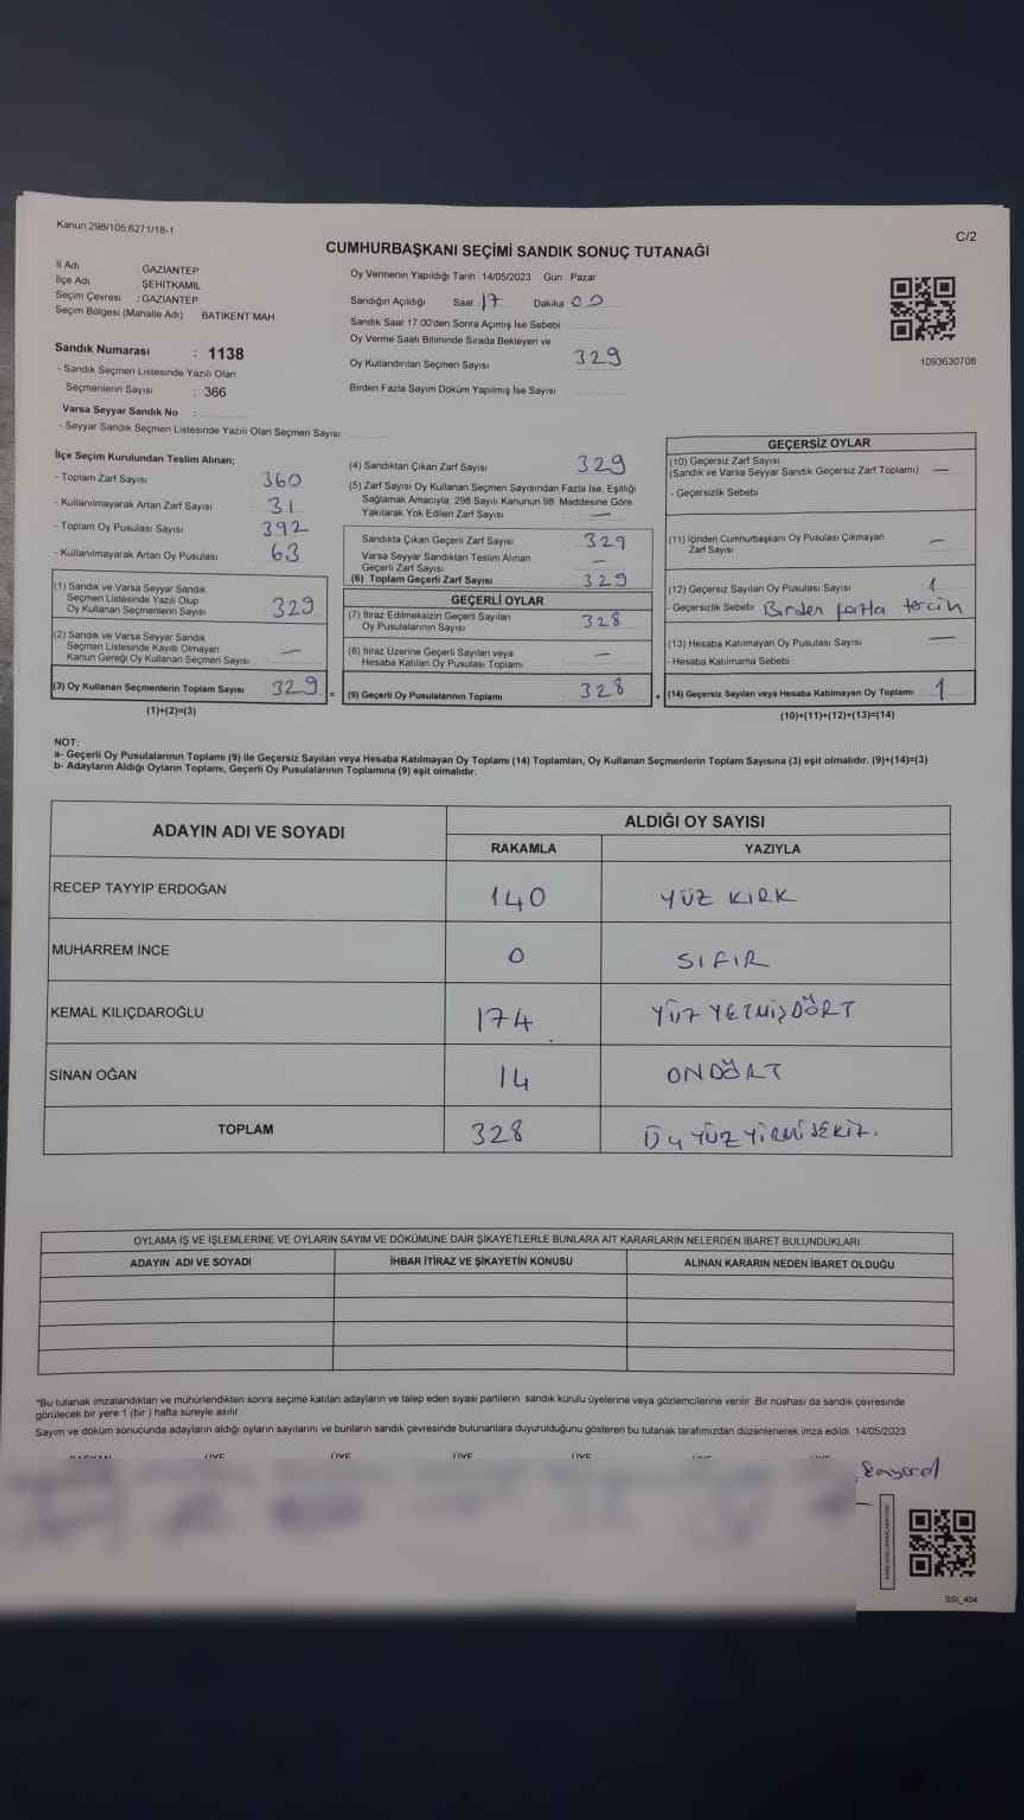 Kanun;298/105;6271/18-1
C/2
CUMHURBAŞKANI SEÇİMİ SANDIK SONUÇ TUTANAĞI
İl Adı GAZIANTEP
İlçe Adı ŞEHİTKAMIL
Seçim Çevresi : GAZIANTEP
Seçim Bölgesi (Mahalle Adı) BATIKENT MAH.
Sandık Numarası : 1138
- Sandık Seçmen Listesinde Yazılı Olan
Seçmenlerin Sayısı : 366
Varsa Seyyar Sandık No :
- Seyyar Sandık Seçmen Listesinde Yazılı Olan Seçmen Sayısı
Oy Vermenin Yapıldığı Tarih 14/05/2023 Gün : Pazar
Sandığın Açıldığı Saat 17 Dakika 00
Sandık Saat 17.00'den Sonra Açımış İse Sebebi
Oy Verme Saati Bitiminde Sırada Bekleyen ve
Oy Kullandırılan Seçmen Sayısı 329
Birden Fazla Sayım Döküm Yapılmış İse Sayısı
1093630706
İlçe Seçim Kurulundan Teslim Alınan;
- Toplam Zarf Sayısı 360
- Kullanılmayarak Artan Zarf Sayısı 31
- Toplam Oy Pusulası Sayısı 392
- Kullanılmayarak Artan Oy Pusulası 63
(1) Sandık ve Varsa Seyyar Sandık
Seçmen Listesinde Yazılı Olup
Oy Kullanan Seçmenlerin Sayısı : 329
(2) Sandık ve Varsa Seyyar Sandık
Seçmen Listesinde Kayıtlı Olmayan
Kanun Gereği Oy Kullanan Seçmen Sayısı —
(3) Oy Kullanan Seçmenlerin Toplam Sayısı 329 =
(1)+(2)=(3)
(4) Sandıktan Çıkan Zarf Sayısı 329
(5) Zarf Sayısı Oy Kullanan Seçmen Sayısından Fazla İse, Eşitliği
Sağlamak Amacıyla; 298 Sayılı Kanunun 98. Maddesine Göre
Yakılarak Yok Edilen Zarf Sayısı —
Sandıkta Çıkan Geçerli Zarf Sayısı 329
Varsa Seyyar Sandıktan Teslim Alınan
Geçerli Zarf Sayısı —
(6) Toplam Geçerli Zarf Sayısı 329
GEÇERLİ OYLAR
(7) İtiraz Edilmeksizin Geçerli Sayılan
Oy Pusulalarının Sayısı 328
(8) İtiraz Üzerine Geçerli Sayılan veya
Hesaba Katılan Oy Pusulası Toplamı —
(9) Geçerli Oy Pusulalarının Toplamı 328 +
GEÇERSİZ OYLAR
(10) Geçersiz Zarf Sayısı
(Sandık ve Varsa Seyyar Sandık Geçersiz Zarf Toplamı) —
- Geçersizlik Sebebi
(11) İçinden Cumhurbaşkanı Oy Pusulası Çıkmayan
Zarf Sayısı —
(12) Geçersiz Sayılan Oy Pusulası Sayısı 1
- Geçersizlik Sebebi Birden fazla tercih
(13) Hesaba Katılmayan Oy Pusulası Sayısı —
- Hesaba Katılmama Sebebi
(14) Geçersiz Sayılan veya Hesaba Katılmayan Oy Toplamı 1
(10)+(11)+(12)+(13)=(14)
NOT:
a- Geçerli Oy Pusulalarının Toplamı (9) ile Geçersiz Sayılan veya Hesaba Katılmayan Oy Toplamı (14) Toplamları, Oy Kullanan Seçmenlerin Toplam Sayısına (3) eşit olmalıdır. (9)+(14)=(3)
b- Adayların Aldığı Oyların Toplamı, Geçerli Oy Pusulalarının Toplamına (9) eşit olmalıdır.
ADAYIN ADI VE SOYADI ALDIĞI OY SAYISI
RAKAMLA YAZIYLA
RECEP TAYYİP ERDOĞAN 140 YÜZ KIRK
MUHARREM İNCE 0 SIFIR
KEMAL KILIÇDAROĞLU 174 YÜZ YETMİŞDÖRT
SİNAN OĞAN 14 ONDÖRT
TOPLAM 328 ÜÇ YÜZ YİRMİ SEKİZ.
OYLAMA İŞ VE İŞLEMLERİNE VE OYLARIN SAYIM VE DÖKÜMÜNE DAİR ŞİKAYETLERLE BUNLARA AİT KARARLARIN NELERDEN İBARET BULUNDUKLARI
ADAYIN ADI VE SOYADI İHBAR İTİRAZ VE ŞİKAYETİN KONUSU ALINAN KARARIN NEDEN İBARET OLDUĞU
*Bu tutanak imzalandıktan ve mühürlendikten sonra seçime katılan adayların ve talep eden siyasi partilerin sandık kurulu üyelerine veya gözlemcilerine verilir. Bir nüshası da sandık çevresinde
görülecek bir yere 1 (bir ) hafta süreyle asılır.
Sayım ve döküm sonucunda adayların aldığı oyların sayılarını ve bunların sandık çevresinde bulunanlara duyurulduğunu gösteren bu tutanak tarafımızdan düzenlenerek imza edildi. 14/05/2023
BAŞKAN ÜYE ÜYE ÜYE ÜYE ÜYE ÜYE
SSI_404